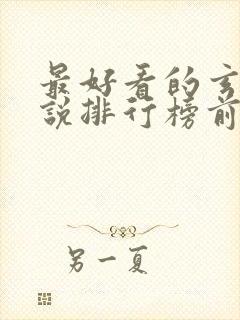 最好看的玄
說排行榜前
另一夏